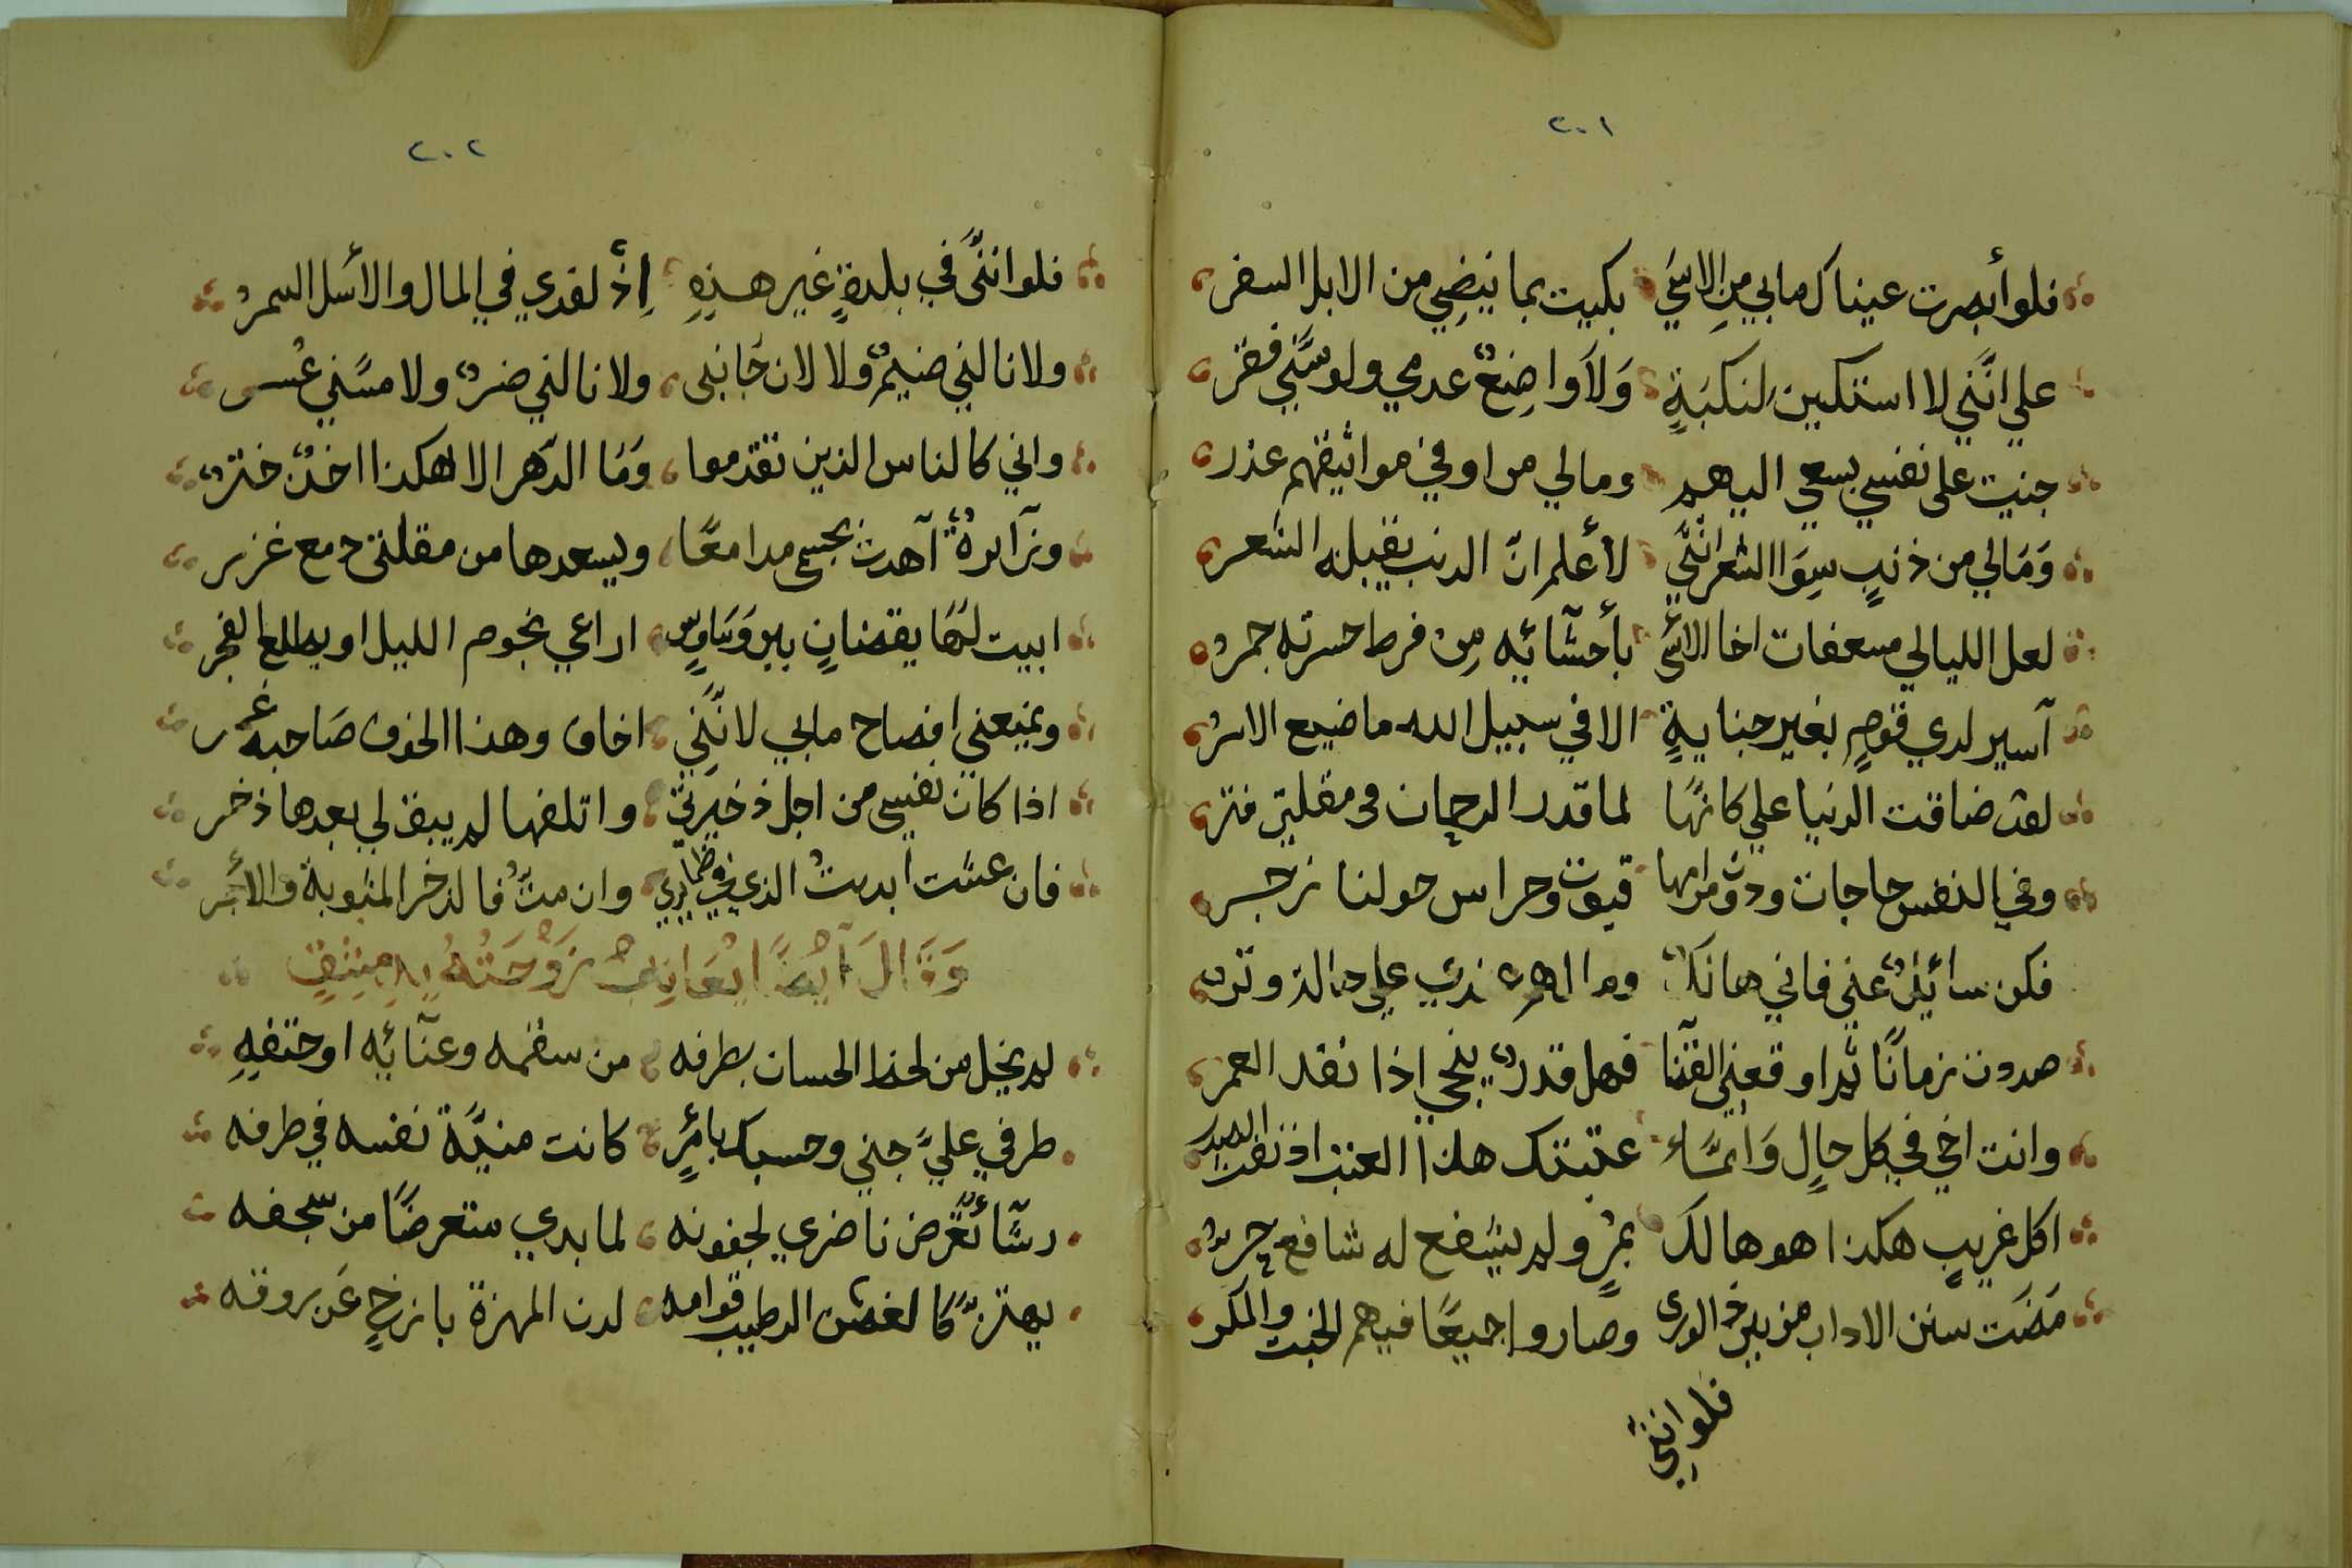 ٢٠١
فلو أبصرت عيناك مابي من الاسَي بكيت بما ينضِي من الابل السفر
علي انَّني لا استكين لنكبَةٍ وَلاَ واضِعٌ عدمي ولو مسَّني فقر
جنيت على نفسي بسعي اليهم ومالي من اوفي مواثيقهم عذر
وَمَالي من ذنبٍ سِوَا الشعر انَّني لأعلم انّ الدنب يقبله الشعر
لعل الليالي مسعفات اخا الاسَي بأحشآئه مِن فرط حسرته جمر
آسير لدي قومٍ بغير جنايةٍ الا في سبيل الله ما ضيع الاسرُ
لقد ضاقت الدنيا علي كانهَّا لما قدر الرحمان في مقلتي فتر
وفي النفس حاجات ودون مرامها قيود وحراس حولنا زجر
فكن سائلٌ عني فاني هالكٌ وما
صددت زمانًا ثم اوقعني القضا فهل قدرٌ ينجي اذا نفد العمر
وانت اخي في كل حالٍ وَانمَّا عتبتك هذا العتب اذ نفد الصبر
اكل غريبٍ هكذا هو هالك بمرٍ ولم يشفع له شافع حرُ
مَضَت سنن الاداب من بين ذا الورى وصاروا جميعًا فيهم الخبث والمكر
فلو انَّنِي
٢٠٢
فلو انَّني في بلدةٍ غير هذِهِ اِذْ لفدي في المال والأسل السمر
ولا نالني ضيمٌ ولا لان جَانبي ولا نالني ضرٌ ولا مسَّني عُسر
واني كالناس الذين تقدموا وَمَا الدَّهر الا هكذا اخدٌ خترٌ
وزآئرةٌ آهدت بجسمي مدامعًا ويسعدها من مقلتي دمع غزر
ابيت لهَا يقضانٍ بين وَسَاوسٍ اراعي نجوم الليل او يطلع الفجر
ويمنعني افصاح مابي لانَّنِي اخاف وهذا الخوف صَاحبه غمر
اذا كان نفسي من اجل ذخيرتي واتلفها لم يبق لي بعدها ذخر
فان عشت ابديتُ الذي في ضمايري وان متُّ فالذخر المثوبة والأجر
وَقَالَ آيْضًا ايُعَاتِبُ زَوْجَتُهُ بِدِمِشقٍ
لم يخل من لحظ الحسان بطرفه من سقمه وعنآئه او حتفهِ
طرفي عليَّ جني وحسبك بأمرٍ كانت منيَّة نفسه في طرفه
رشًآ تعَّرض ناضري لجفونه لما بدي متعرضًا من سجفه
يهتزُّ كالغصن الرطيب قوامه لدن المهزة بازخٍ عَن روقه